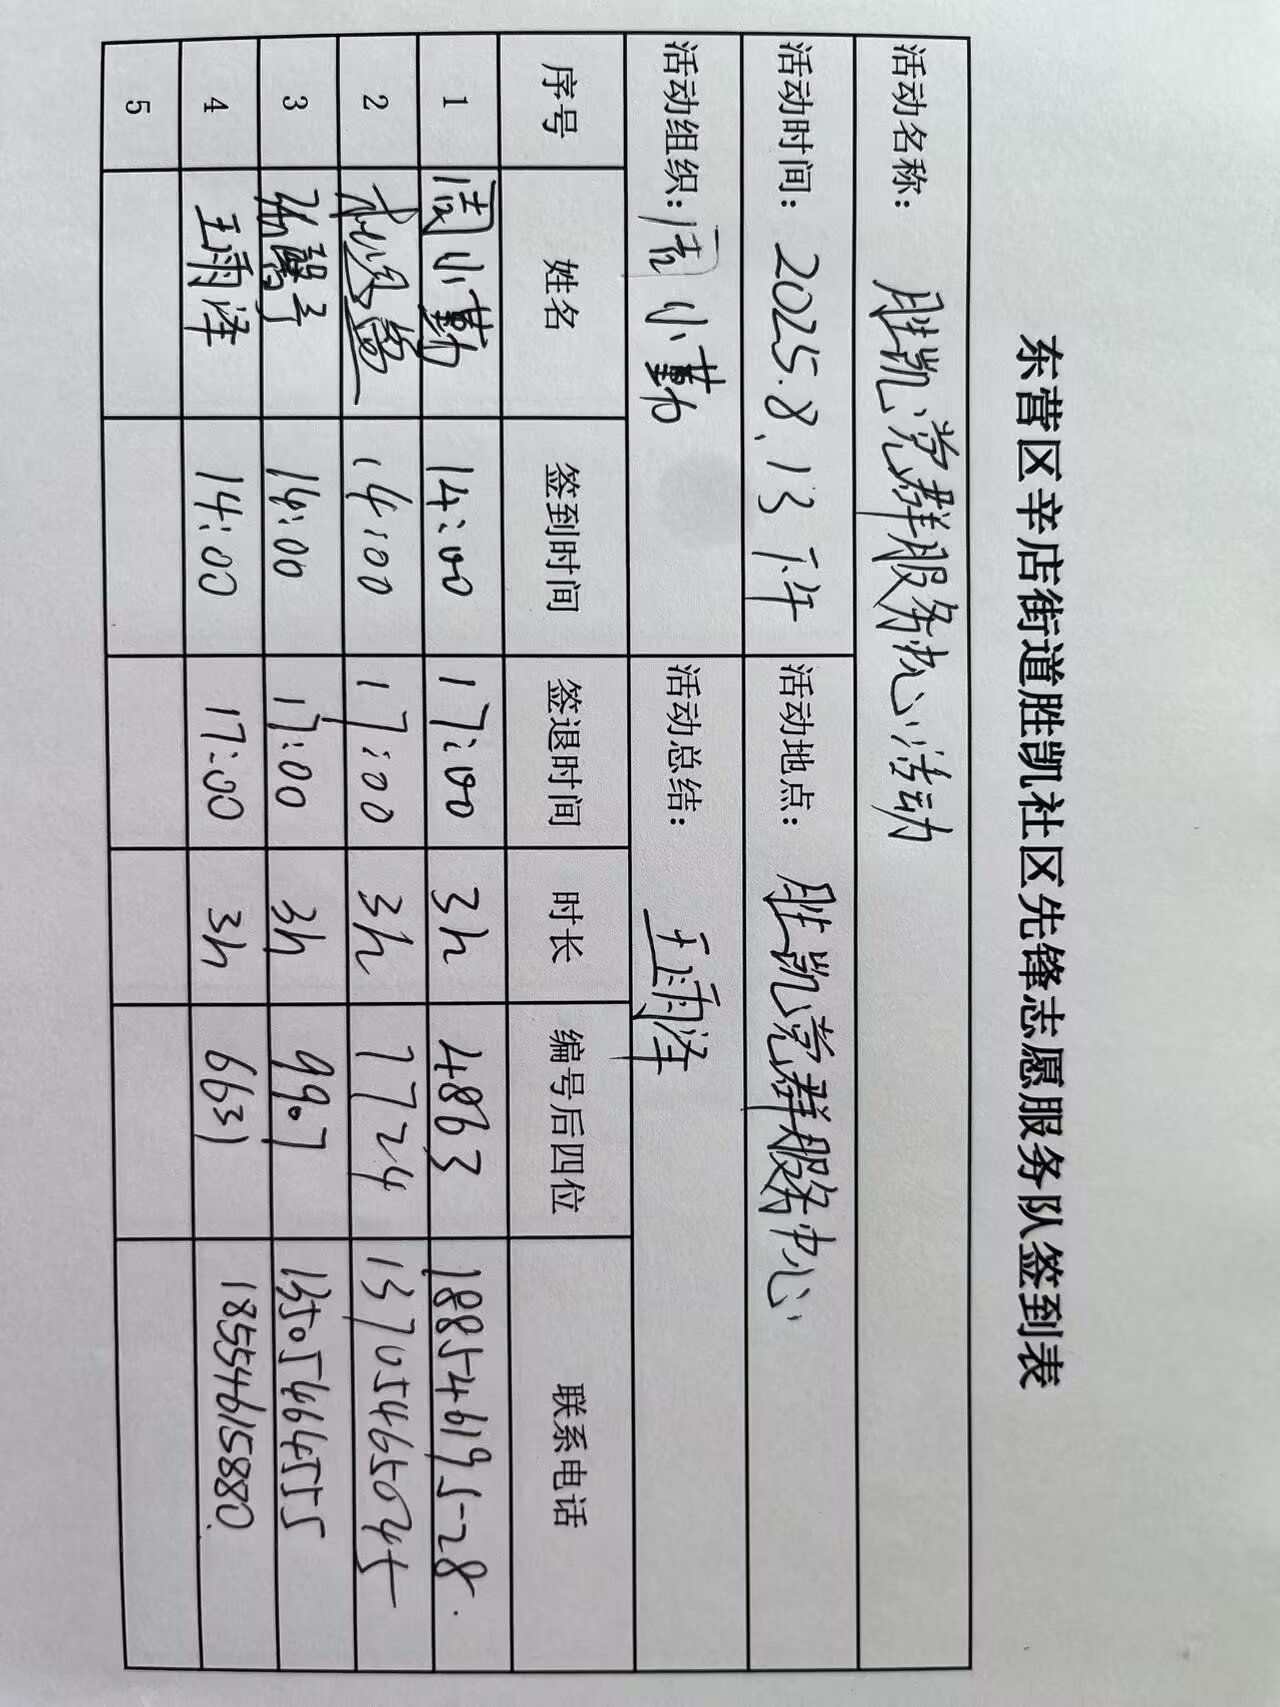 东营区辛店街道胜凯社区先锋志愿服务队签到表
活动名称： 胜凯党群服务中心活动
活动时间：2025.8.13 下午 活动地点： 胜凯党群服务中心
活动组织：周小勤 活动总结： 王雨泽
序号 姓名 签到时间 签退时间 时长 编号后四位 联系电话
1 周小勤 14:00 17:00 3h 4863 18854619528
2 14:00 17:00 3h 7724 13705465045
3 14:00 17:00 3h 9907 13505466455
4 王雨泽 14:00 17:00 3h 6631 18554615880
5